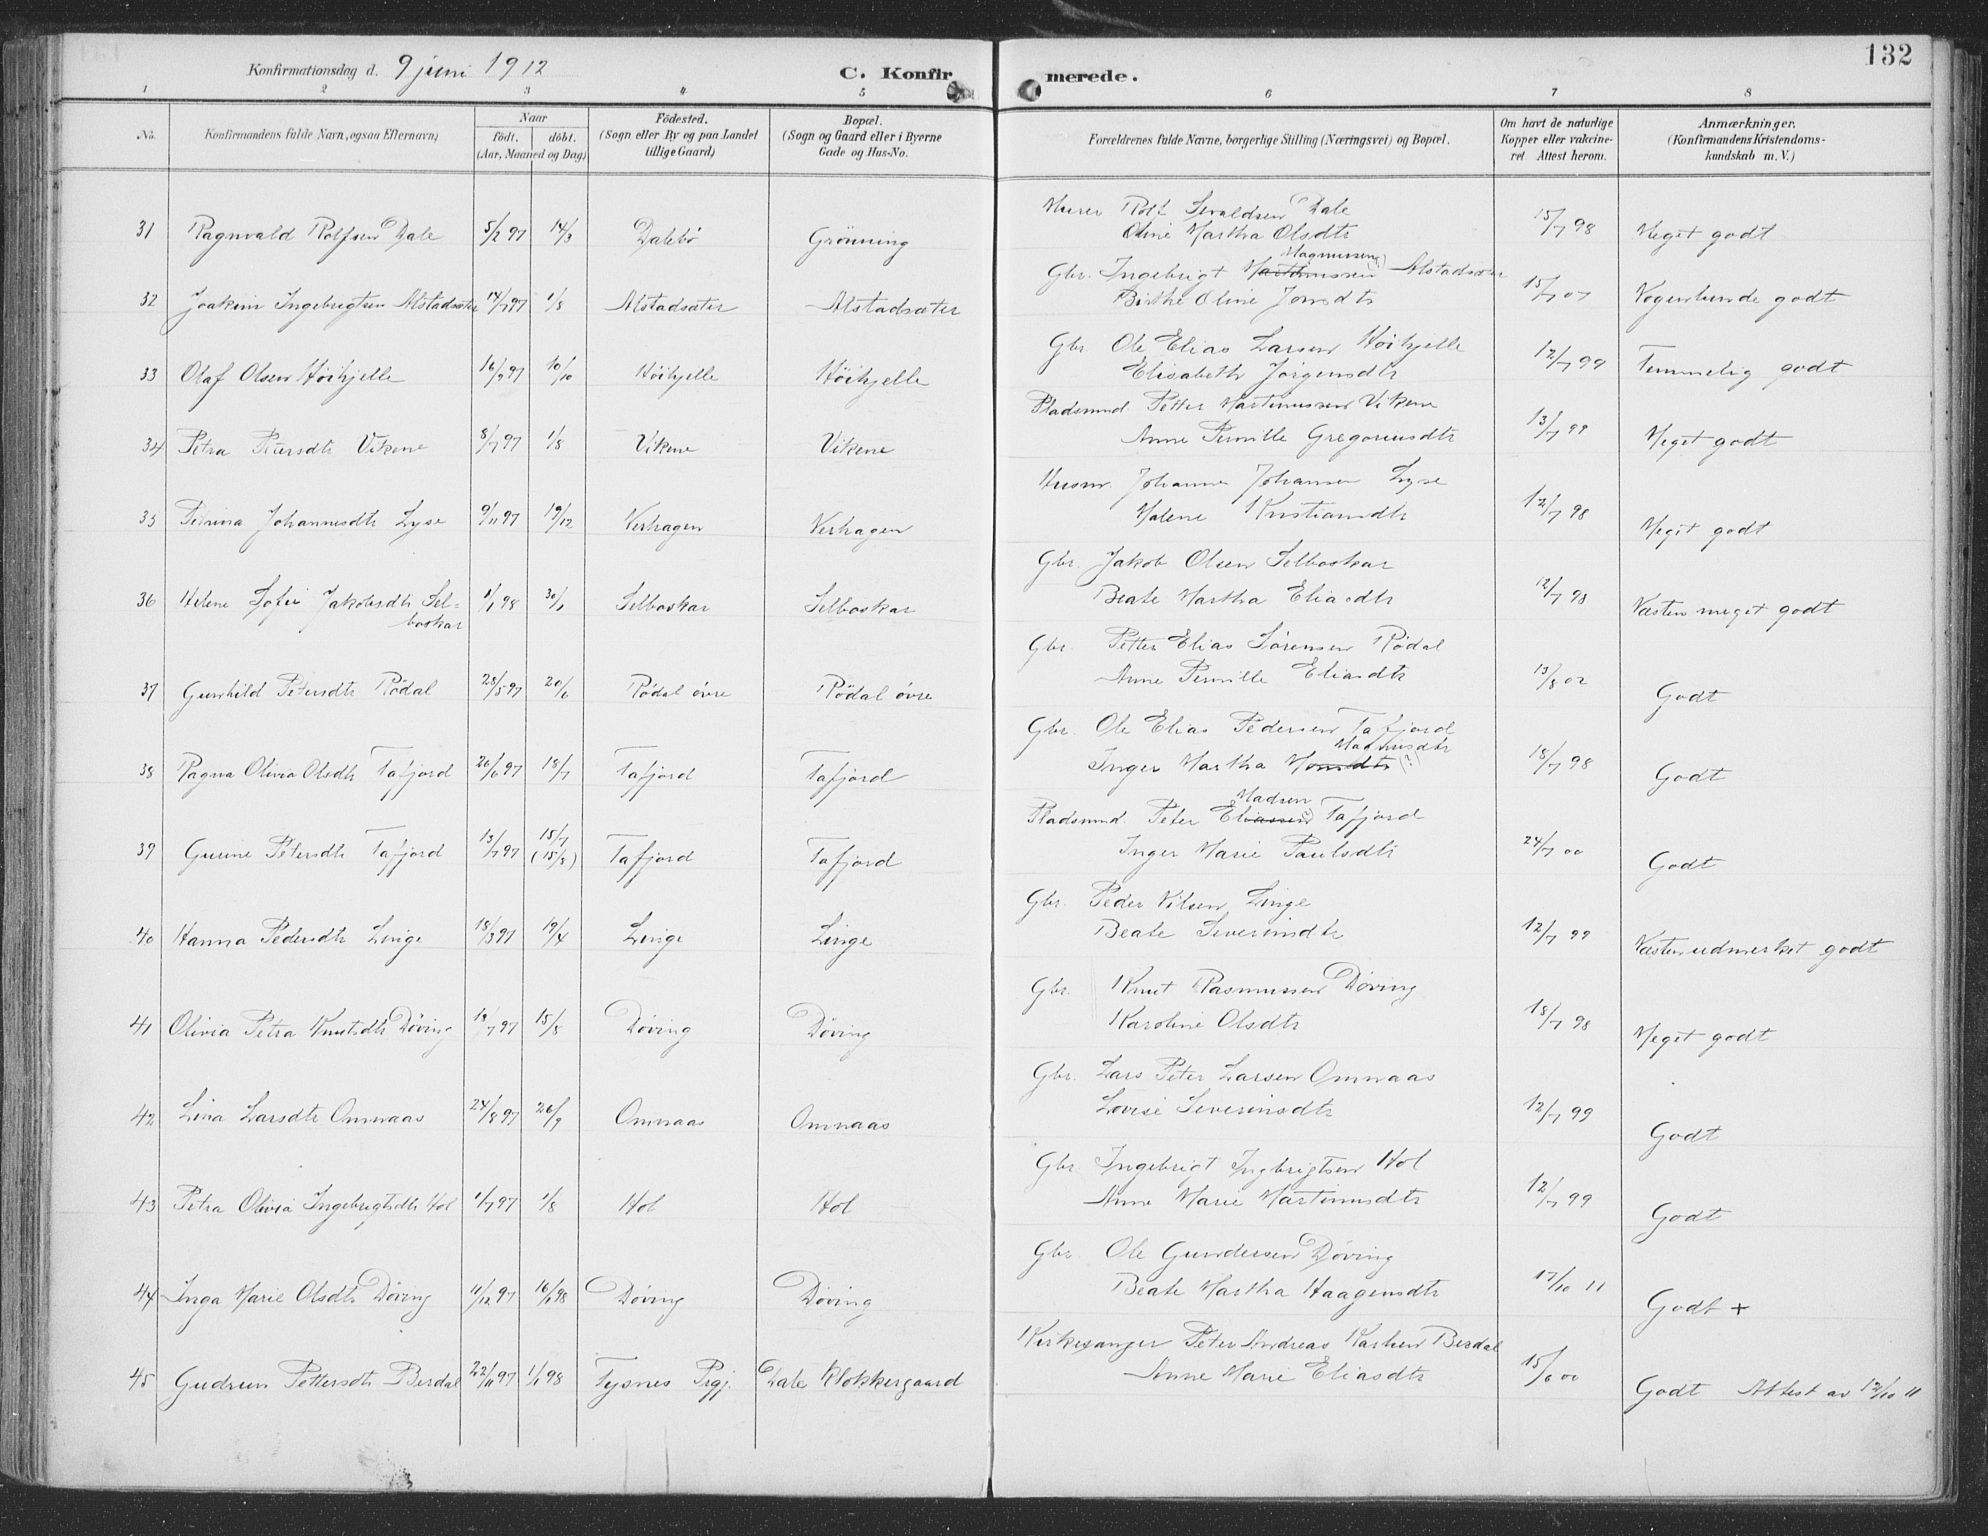 Konfirmationsdag d. 9 juni 1912 C. Konfir merede. 132
1 2 3 4 5 6 7 8
No. Konfirmandens fulde Navn, ogsaa Efternavn) Naar födt. döbt. (Aar, Maaned og Dag)
Födested. (Sogn eller By og paa Landet tillige Gaard)
Bopæl. (Sogn og Gaard eller i Byerne Gade og Hus-No.
Forældrenes fulde Navne, borgerlige Stilling (Næringsvei) og Bopæl.
Om havt de naturlige Kopper eller vakcineret. Attest herom.
Anmærkninger. (Konfirmandens Kristendomskundskab m. V.)
Murer Rolf Sevaldsen Dale
31 Ragnvald Rolfsen Dale 5/2 97 14/3 Dalebö Grönning Oline Martha Olsdtr 15/7 98 Meget godt
Gbr. Ingebrigt Magnussen (?) Alstadsæter
32 Joakim Ingebrigtsen Alstadsæter 14/7 97 1/8 Alstadsæter Alstadsæter Birthe Oline Jonsdtr 15/7 07 Nogenlunde godt
Gbr Ole Elias Larsen Höihjelle
33 Olaf Olsen Höihjelle 16/9 97 10/10 Höihjelle Höihjelle Elisabeth Jörgensdtr 12/7 99 Temmelig godt
Pladsmnd. Petter Martinussen Vikene
34 Petra Petersdtr Vikene 8/7 97 1/8 Vikene Vikene Anne Pernille Gregoriusdtr 13/7 99 Meget godt
Husm. Johannes Johansen Lyse
35 Johannesdtr Lyse 9/11 97 19/12 Verhagen Verhagen Malene Kristiansdtr 12/7 98 Meget godt
Gbr. Jakob Olsen Selboskar
36 Helene Sofie Jakobsdtr Selboskar 1/1 98 30/1 Selboskar Selboskar Beate Martha Eliasdtr 12/7 98 Næsten meget godt
Gbr. Petter Elias Sörensen Rödal
37 Gunhild Petersdtr Rödal 28/5 97 20/6 Rödal övre Rödal övre Anne Pernille Eliasdtr 13/8 02 Godt
Gbr. Ole Elias Pedersen Tafjord
38 Ragna Olivia Olsdtr Tafjord 26/6 97 18/7 Tafjord Tafjord Inger Martha Magnusdtr (?) 18/7 98 Godt
Pladsmnd. Peter Eliassen Madsen (?) Tafjord
39 Gurine Petersdtr Tafjord 13/7 97 15/7 (15/8) Tafjord Tafjord Inger Marie Paulsdtr 24/7 00 Godt
Gbr. Peder Nilsen Linge
40 Hanna Pedersdtr Linge 18/3 97 19/4 Linge Linge Beate Severinsdtr 12/7 99 Næsten udmerket godt
Gbr. Knut Rasmussen Döving
41 Olivia Petra Knutsdtr Döving 13/7 97 15/8 Döving Döving Karoline Olsdtr 18/7 98 Meget godt
Gbr. Lars Peter Larsen Omnaas
42 Lina Larsdtr Omnaas 24/8 97 26/9 Omnaas Omnaas Lovise Severinsdtr 12/7 99 Godt
Gbr Ingebrigt Ingbrigtsen Hol
43 Petra Olivia Ingebrigtsdtr Hol 1/7 97 1/8 Hol Hol Anne Marie Martinusdtr 12/7 99 Godt
Gbr. Ole Gundersen Döving
44 Inga Marie Olsdtr Döving 11/12 97 16/1 98 Döving Döving Beate Martha Haagensdtr 17/10 11 Godt +
Kirkesanger Peter Andreas Berdal
45 Gudrun Pettersdtr Berdal 22/11 97 1/1 98 Tysnes Prgj. Dale Klokkergaard Anne Marie Eliasdtr 15/6 00 Godt Attest av 12/10 11